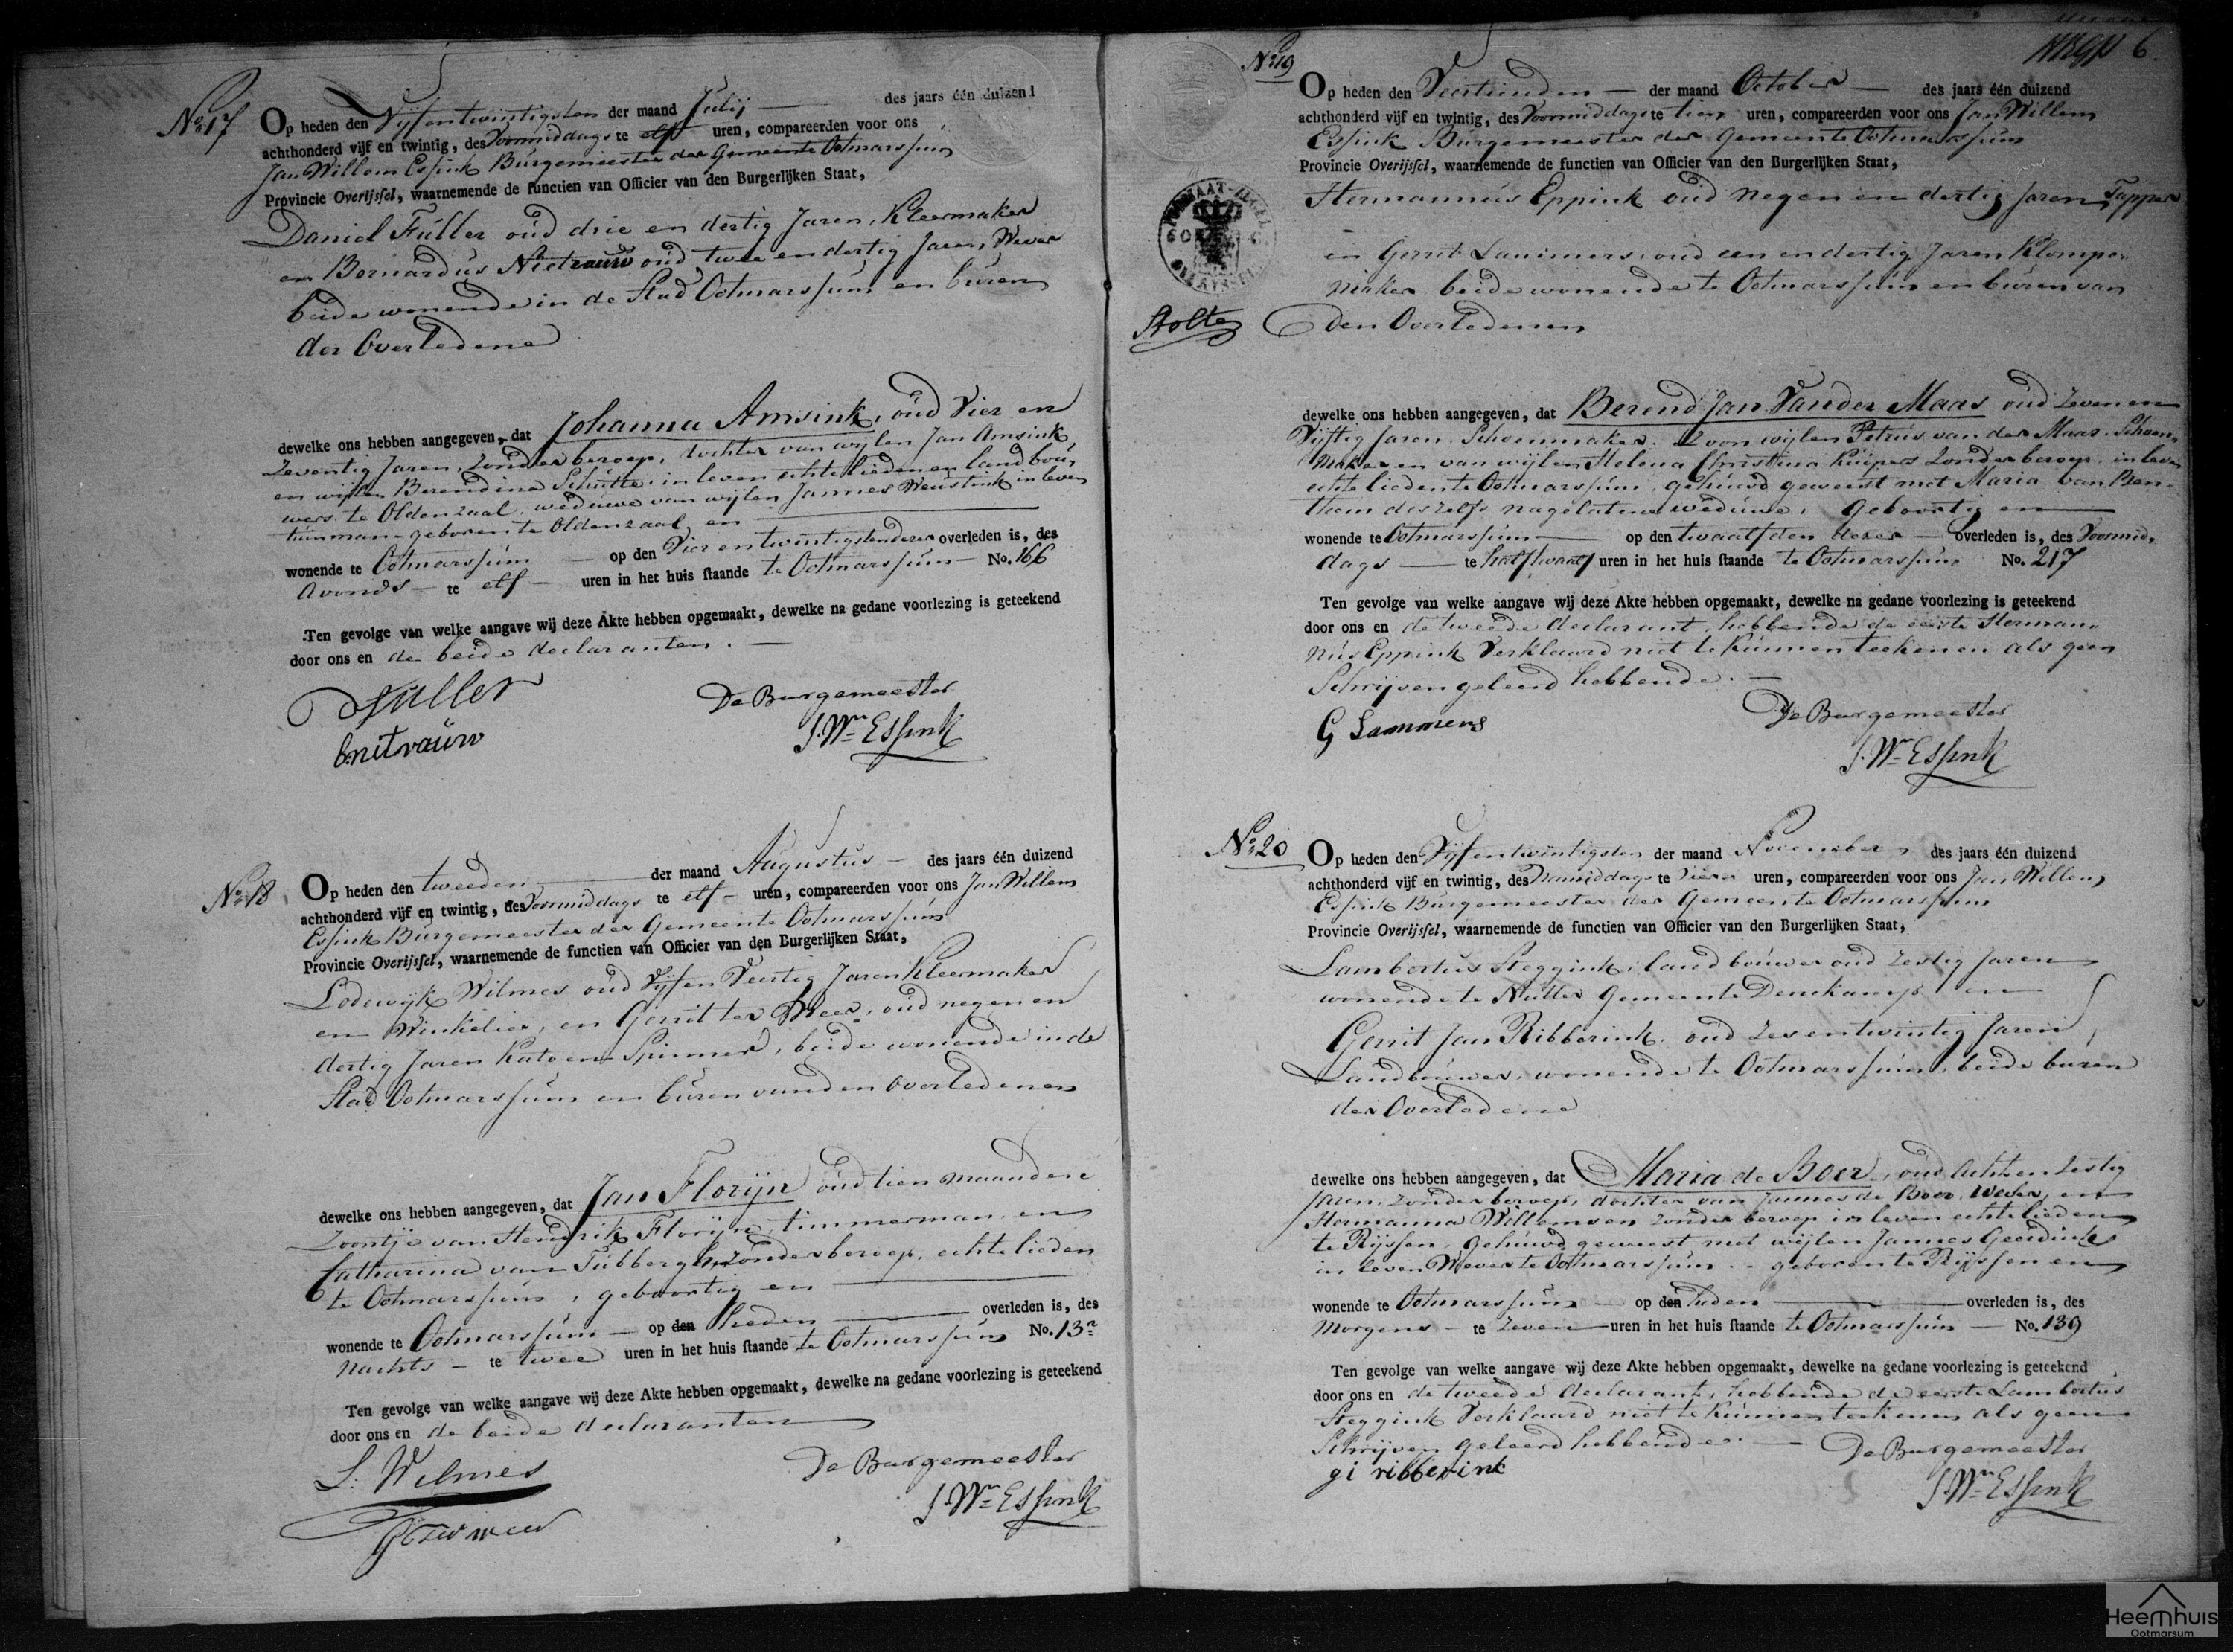 No 17
Op heden den Vijfentwintigsten der maand Julij des jaars één duizend
achthonderd vijf en twintig, des Voormiddags te elf uren, compareerden voor ons
Jan Willem Essink Burgemeester der Gemeente Ootmarssum
Provincie Overijssel, waarnemende de functien van Officier van den Burgerlijken Staat,
Daniel Fuller oud drie en dertig Jaren, Kleermaker
en Bernardus Nietrauw oud twee en dertig Jaren, Wever
beide wonende in de Stad Ootmarssum en buren
der Overledene
dewelke ons hebben aangegeven, dat Johanna Amsink, oud Vier en
Zeventig Jaren, zonder beroep, dochter van wijlen Jan Amsink,
en wijlen Berendina Schutte, in leven echtelieden en landbou-
wers te Oldenzaal, weduwe van wijlen Jannes Weustink in leven
tuinman - geboren te Oldenzaal, en
wonende te Ootmarssum op den Vier en twintigsten dezer overleden is, des
Avonds te elf uren in het huis staande te Ootmarssum No. 166
Ten gevolge van welke aangave wij deze Akte hebben opgemaakt, dewelke na gedane voorlezing is geteekend
door ons en de beide declaranten.
D Fuller
De Burgemeester
b:nitrauw
J. Wm Essink
No 18
Op heden den tweeden der maand Augustus des jaars één duizend
achthonderd vijf en twintig, des Voormiddags te elf uren, compareerden voor ons Jan Willem
Essink Burgemeester der Gemeente Ootmarssum
Provincie Overijssel, waarnemende de functien van Officier van den Burgerlijken Staat,
Lodewijk Wilmes oud Vijf en Veertig Jaren Kleermaker
en Winkelier, en Gerrit ter Weer, oud negen en
dertig Jaren Katoen Spinner, beide wonende in de
Stad Ootmarssum en buren van den Overledenen
dewelke ons hebben aangegeven, dat Jan Florijn oud tien maanden
Zoontje van Hendrik Florijn, timmerman en
Catharina van Tubbergh, zonder beroep, echtelieden
te Ootmarssum, geboortig en
wonende te Ootmarssum op den heden overleden is, des
Nachts te twee uren in het huis staande te Ootmarssum No. 13a
Ten gevolge van welke aangave wij deze Akte hebben opgemaakt, dewelke na gedane voorlezing is geteekend
door ons en de beide declaranten
L. Wilmes
De Burgemeester
G ter weer
J. Wm Essink
6
No 19
Op heden den Veertienden der maand October des jaars één duizend
achthonderd vijf en twintig, des Voormiddags te tien uren, compareerden voor ons Jan Willem
Essink Burgemeester der Gemeente Ootmarssum
Provincie Overijssel, waarnemende de functien van Officier van den Burgerlijken Staat,
Hermannus Eppink oud negen en dertig Jaren, Tapper
en Gerrit Lammers, oud een en dertig Jaren Klompe-
maker beide wonende te Ootmarssum en buren van
Stolte
den Overledenen
dewelke ons hebben aangegeven, dat Berend Jan Van der Maas oud Zeven en
Vijftig Jaren, Schoenmaker. Zoon wijlen Petrus van der Maas, Schoen-
maker en van wijlen Helena Christina Kuipers zonder beroep, in leven
echtelieden te Ootmarssum, gehuwd geweest met Maria van Ben-
them deszelfs nagelatene weduwe, geboortig en
wonende te Ootmarssum op den twaalfden dezer overleden is, des Voormid-
dags te half twaalf uren in het huis staande te Ootmarssum No. 217
Ten gevolge van welke aangave wij deze Akte hebben opgemaakt, dewelke na gedane voorlezing is geteekend
door ons en de tweede declarant, hebbende de eerste Herman-
nus Eppink Verklaard niet te kunnen teekenen als geen
Schrijven geleerd hebbende.
De Burgemeester
G Lammers
J. Wm Essink
No 20
Op heden den Vijfentwintigsten der maand November des jaars één duizend
achthonderd vijf en twintig, des Namiddags te Vier uren, compareerden voor ons Jan Willem
Essink Burgemeester der Gemeente Ootmarssum
Provincie Overijssel, waarnemende de functien van Officier van den Burgerlijken Staat,
Lambertus Steggink, landbouwer oud Zestig Jaren
wonende te Nutter Gemeente Denekamp en
Gerrit Jan Ribberink, oud Zes en twintig Jaren,
Landbouwer, wonende te Ootmarssum, beide buren
der Overledene
dewelke ons hebben aangegeven, dat Maria de Boer, oud Acht en Zestig
Jaren, zonder beroep, dochter van Jannes de Boer, Wever, en
Hermanna Willemsen zonder beroep in leven echtelieden
te Rijssen, gehuwd geweest met wijlen Jannes Geerdink
in leven Wever te Ootmarssum - geboren te Rijssen en
wonende te Ootmarssum op den heden overleden is, des
Morgens te Zeven uren in het huis staande te Ootmarssum No. 139
Ten gevolge van welke aangave wij deze Akte hebben opgemaakt, dewelke na gedane voorlezing is geteekend
door ons en de tweede declarant, hebbende de eerste Lambertus
Steggink Verklaard niet te kunnen teekenen als geen
Schrijven geleerd hebbende.
De Burgemeester
gi ribberink
J. Wm Essink
Heemhuis
Ootmarsum